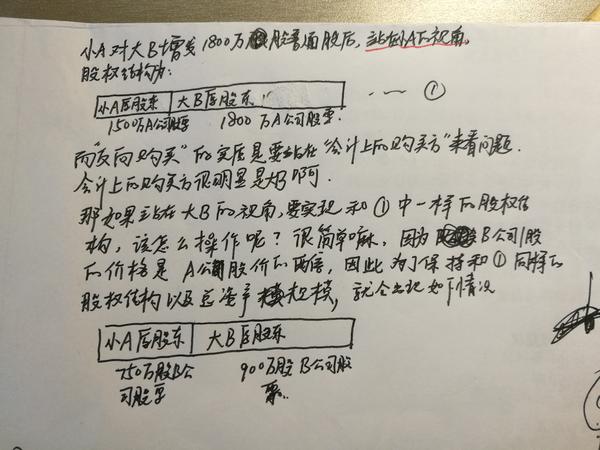 小A对大B增发1800万股普通股后,站在A下视角。
股权结构为:
小A原股东 大B原股东 ... ①
1500万A公司股票 1800万A公司股票.
而"反向购买"的实质是要站在"会计上的购买方"来看问题.
会计上的购买方很明显是大B啊.
那如果站在大B的视角,要实现和①中一样的股权结
构,该怎么操作呢?很简单嘛,因为B公司1股
的价格是A公司股价的两倍,因此为了保持和①同样的
股权结构以及总资产规模,就会出现如下情况
小A原股东 大B原股东
750万股B公 900万股B公司股
司股票 票..